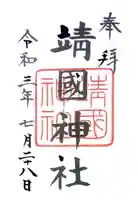 奉拝
靖國神社
令和三年七月二十八日
靖國神社